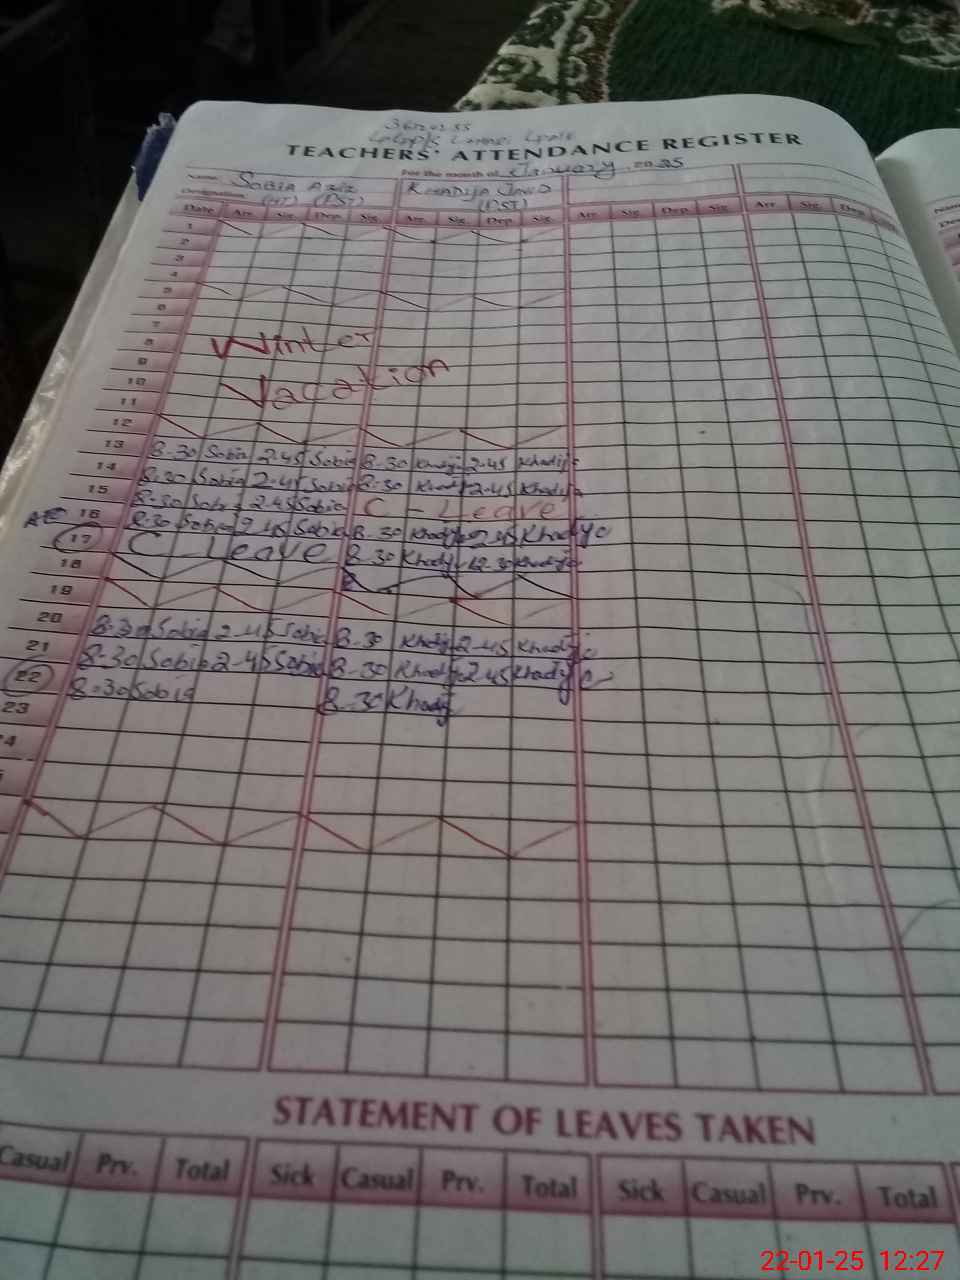 36220255
TEACHERS' ATTENDANCE REGISTER
For the month of January 2025
Name: Sobia Aziz Khadija Javed
Designation: (PST) (PST)
Date Arr. Sig. Dep. Sig. Arr. Sig. Dep. Sig. Arr. Sig. Dep. Sig. Arr. Sig. Dep.
1
2
3
4
5
6
7
8 Winter
9
10 Vacation
11
12
13 8-30 Sobia 2-45 Sobia 8-30 Khadija 2-45 Khadija
14 8-30 Sobia 2-45 Sobia 8-30 Khadija 2-45 Khadija
15 8-30 Sobia 2-45 Sobia C - Leave
16 8-30 Sobia 2-45 Sobia 8-30 Khadija 2-45 Khadija
17 C - Leave 8-30 Khadija 12-30 Khadija
18
19
20 8-30 Sobia 2-45 Sobia 8-30 Khadija 2-45 Khadija
21 8-30 Sobia 2-45 Sobia 8-30 Khadija 2-45 Khadija
22 8-30 Sobia 8-30 Khadij
23
STATEMENT OF LEAVES TAKEN
Casual Prv. Total Sick Casual Prv. Total Sick Casual Prv. Total
22-01-25 12:27